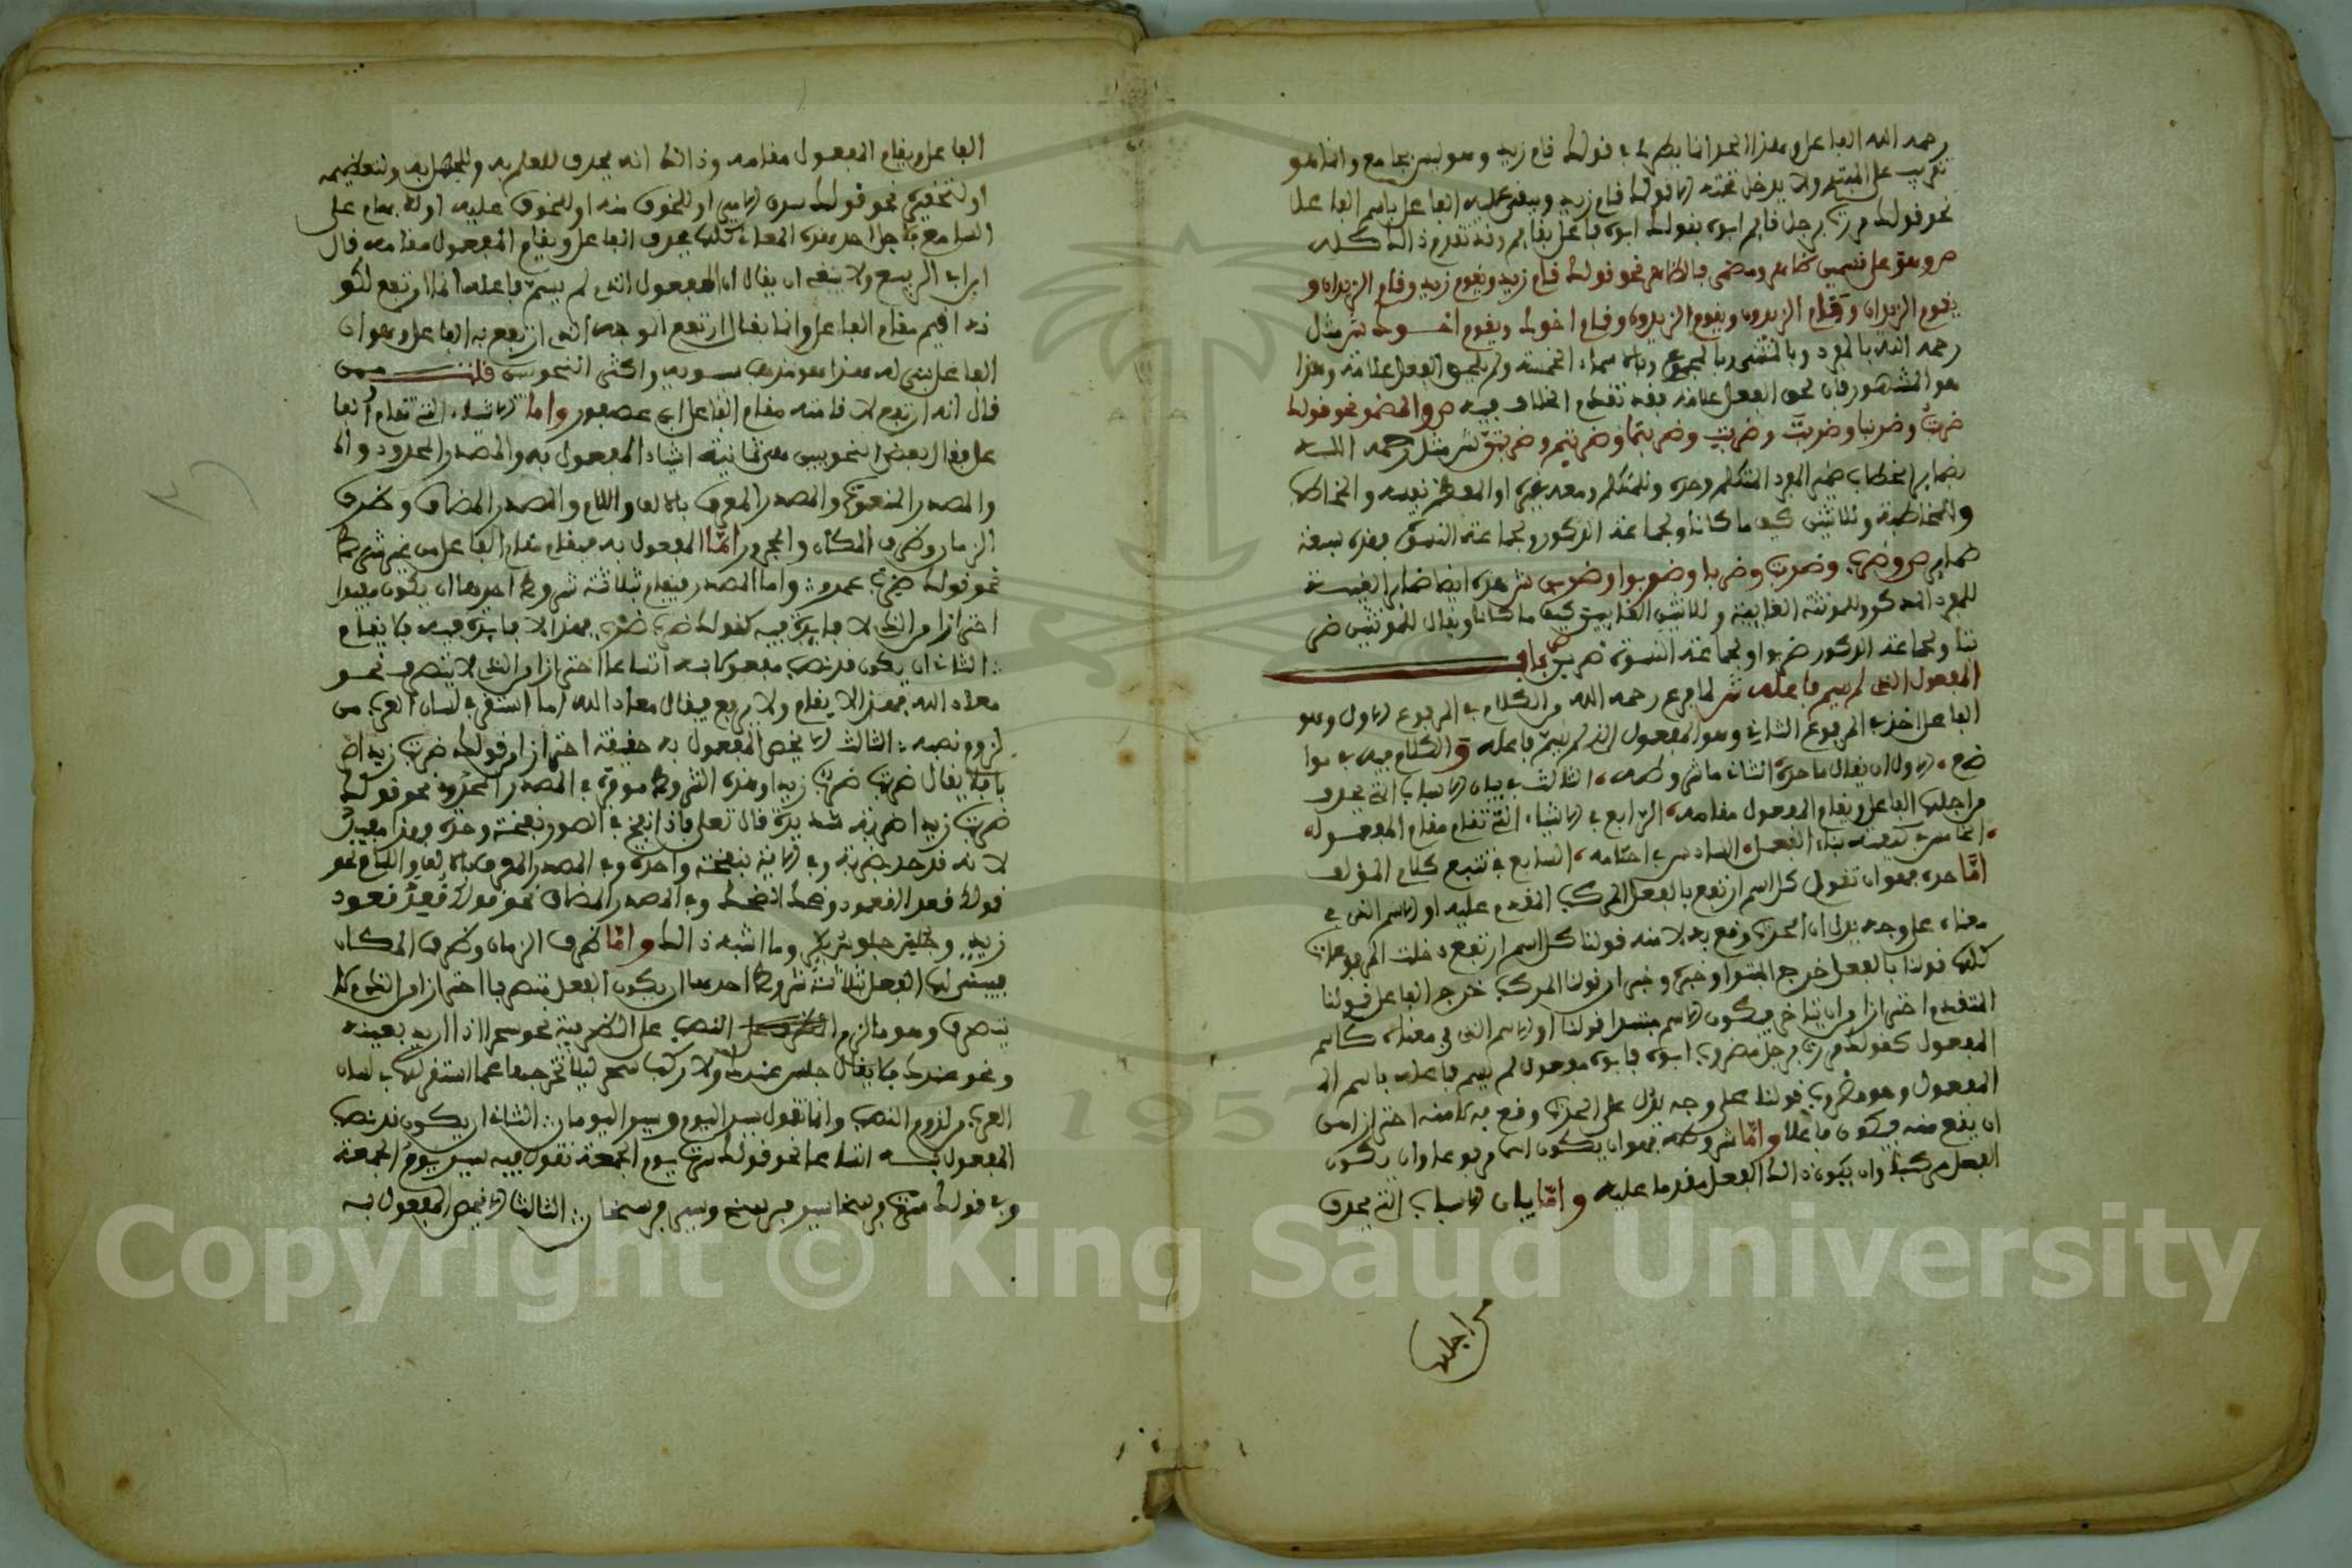 رحمه الله الفاعل وهذا الحد انما يطرد في قولك قام زيد وهو ليس بجامع وانما هو
تقريب على المبتدي ولا يدخل تحته الا قولك قام زيد ويبقى عليه الفاعل باسم الفاعل
نحو قولك مررت برجل قايم ابوه بقولك ابوه فاعل بقايم وقد تقدم ذالك كله
ص وهو على قسمين ظاهر ومضمر فالظاهر نحو قولك قام زيد ويقوم زيد وقام الزيدان و
يقوم الزيدان وقام الزيدون ويقوم الزيدون وقام اخوك ويقوم اخوك ش مثل
رحمه الله بالمفرد وبالمثنى وبالمجموع وبالاسماء الخمسة ولم يلحق الفعل علامة وهذا
هو المشهور فان لحق الفعل علامة فقد تقدم الخلاف فيه ص والمضمر نحو قولك
ضربت وضربنا وضربت وضربت وضربتما وضربتم وضربتن ش مثل رحمه الله
بضماير الخطاب ضمير المفرد المتكلم وحده وللمتكلم ومعه غيره او المعظم نفسه والمخاطب
والمخاطبة وللاثنين كيف ما كانا ولجماعة الذكور ولجماعة النسوة فهذه سبعة
ضماير ص وضرب وضربت وضربا وضربوا وضربن ش هذه ايضا ضماير الغيبة
للمفرد المذكور وللمونثة الغايبة وللاثنين الغايبين كيف ما كانا ويقال للمونثتين ضر
بتا ولجماعة الذكور ضربوا ولجماعة النسوة ضربن ص باب
المفعول الذي لم يسم فاعله ش لما فرغ رحمه الله من الكلام في المرفوع الاول وهو
الفاعل اخذ في المرفوع الثاني وهو المفعول الذي لم يسم فاعله والكلام فيه في موا
ضع الاول ان يقال ما حده الثاني ما شروطه الثالث في بيان الاسباب التي يحذف
من اجلها الفاعل ويقام المفعول مقامه الرابع في الاشياء التي تقام مقام المفعول
الخامس في كيفية بناء الفعل السادس في احكامه السابع في تتبع كلام المؤلف
اما حده فهو ان تقول كل اسم ارتفع بالفعل المركب المقدم عليه او الاسم الذي في
معناه على وجه يدل ان الحدث وقع به لا منه قولنا كل اسم ارتفع دخلت المرفوعات
كلها قولنا بالفعل خرج المبتدا وخبره وخبر ان قولنا المركب خرج الفاعل قولنا
المتقدم احترازا من ان يتاخر فيكون الاسم مبتدا قولنا او الاسم الذي في معناه كاسم
المفعول كقولك مررت برجل مضروب ابوه فابوه مفعول لم يسم فاعله باسم الـ
المفعول وهو مضروب قولنا على وجه يدل على الحدث وقع به لا منه احترازا من
ان يقع منه فيكون فاعلا واما شروطه فهو ان يكون اسما مرفوعا وان يكون
الفعل مركبا وان يكون ذالك الفعل مقدما عليه واما بيان الاسباب التي يحذف
من اجلها
الفاعل ويقام المفعول مقامه وذالك انه يحذف للعلم به وللجهل به ولتعظيمه
او لتحقيره نحو قولك او للخوف منه او للخوف عليه او على
السامع فاجل احد هذه المعاني كلها يحذف الفاعل ويقام المفعول مقامه قال
ابن ابي الربيع ولا ينبغي ان يقال ان المفعول الذي لم يسم فاعله انما ارتفع لكو
نه اقيم مقام الفاعل وانما يقال ارتفع الوجه الذي ارتفع به الفاعل وهو ان
الفاعل بني له هذا هو مذهب سيبويه واكثر النحويين قلت ممن
قال انه ارتفع لاقامته مقام الفاعل ابن عصفور واما الاشياء التي تقام مقام الفا
عل فقال بعض النحويين هي ثمانية اشياء المفعول به والمصدر المحدود والـ
والمصدر المنعوت والمصدر المعرف بالالف واللام والمصدر المضاف وظرف
الزمان وظرف المكان والمجرور اما المفعول به فيقام مقام الفاعل من غير شرط
نحو قولك ضرب عمرو واما المصدر فيقام بثلاثة شروط احدها ان يكون مفيدا
احترازا من الذي لا فايدة فيه كقولك ضرب ضرب فهذا لا فايدة فيه فلا يقام
الثاني ان يكون قد نصب مفعولا به اتساعا احترازا من الذي لا يتصرف نحو
معاذ الله فهذا لا يقام ولا يرفع فيقال معاذ الله لما استقر في لسان العرب من
لزوم نصبه الثالث الا يحضر المفعول به حقيقة احترازا من قولك ضربت زيدا ضر
با فلا يقال ضرب ضرب زيدا وهذه الشروط موفرة في المصدر المحدود نحو قولك
ضربت زيدا ضربة شديدة قال تعلى فاذا نفخ في الصور نفخة وحدة فهذا مفيد
لانه قد حد ضربة وفي الاية بنفخة واحدة وفي المصدر المعرف بالالف واللام نحو
قولك قعد القعود وضحك الضحك وفي المصدر المضاف نحو قولك قعد قعود
زيد وجلس جلوس بكر وما اشبه ذالك واما ظرف الزمان وظرف المكان
فيبنى لها الفعل بثلاثة شروط احدها ان يكون الفعل متصرفا احترازا من الذي لا
يتصرف وهو ما لزم النصب على الظرفية نحو سحر اذا اريد بعينه
ونحو عندك فلا يقال جلس عندك ولا ركب سحر ليلا تخرجها عما استقر لها في لسان
العرب من لزوم النصب وانما تقول سير اليوم وسير اليومان الثاني ان يكون قد نصب
المفعول به اتساعا نحو قولك سرت يوم الجمعة تقول فيه سير يوم الجمعة
وفي قولك سرت فرسخا سير فرسخ وسير فرسخان الثالث الا يحضر المفعول به
Copyright © King Saud University
1957